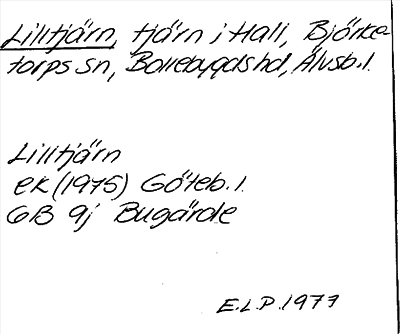 Lilltjärn, tjärn i Hall, Björke-
torps sn, Bollebygds hd, Älvsb. l.
Lilltjärn
ek (1975) Göteb. l.
6B 9j Bugärde
E.L.P. 1977